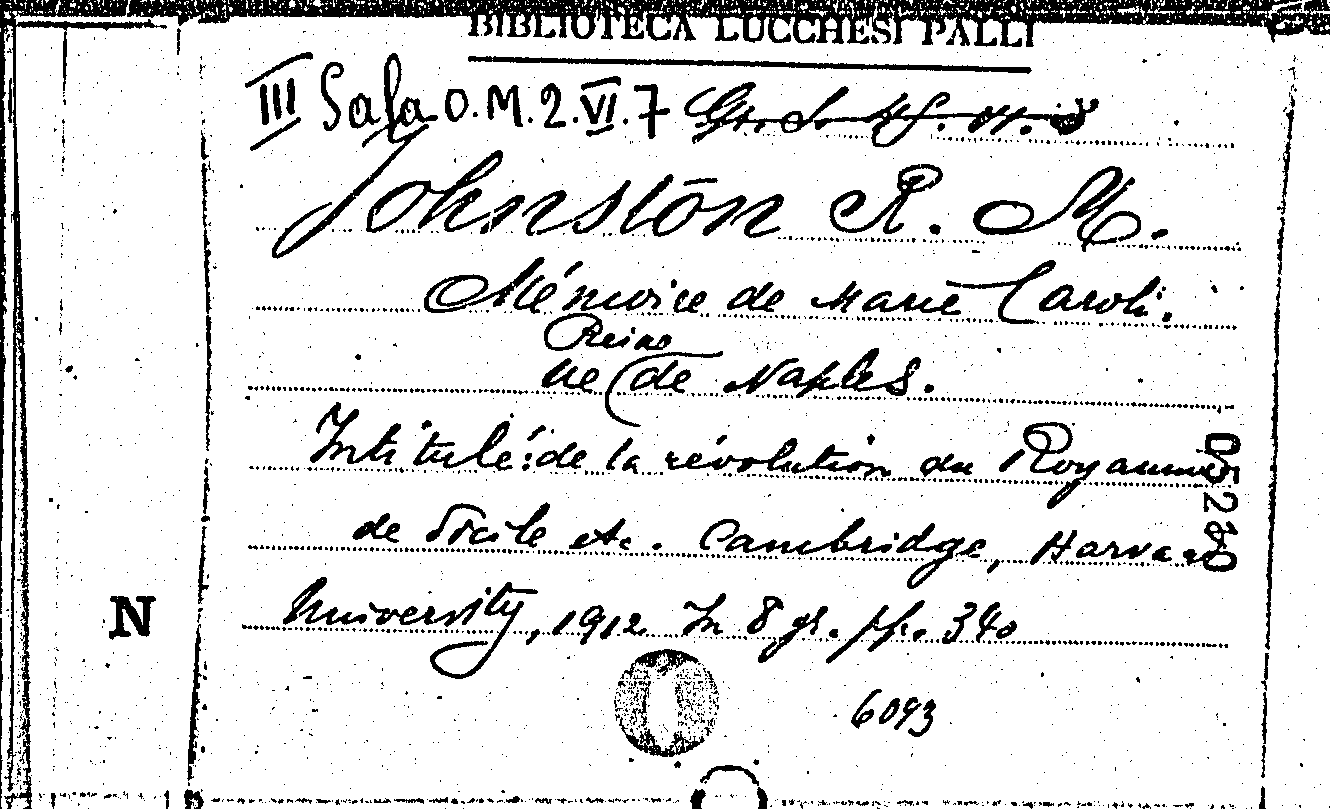 BIBLIOTECA LUCCHESI PALLI
III Sala O.M.2.VI.7
Johnston R. M.
Mémoire de Marie Caroli.
Reine
ne (de Naples.
Intitulé: de la révolution du Royaume
de Sicile etc. Cambridge, Harvard
University, 1912. In 8 gr. pp. 340
6093
N
05280